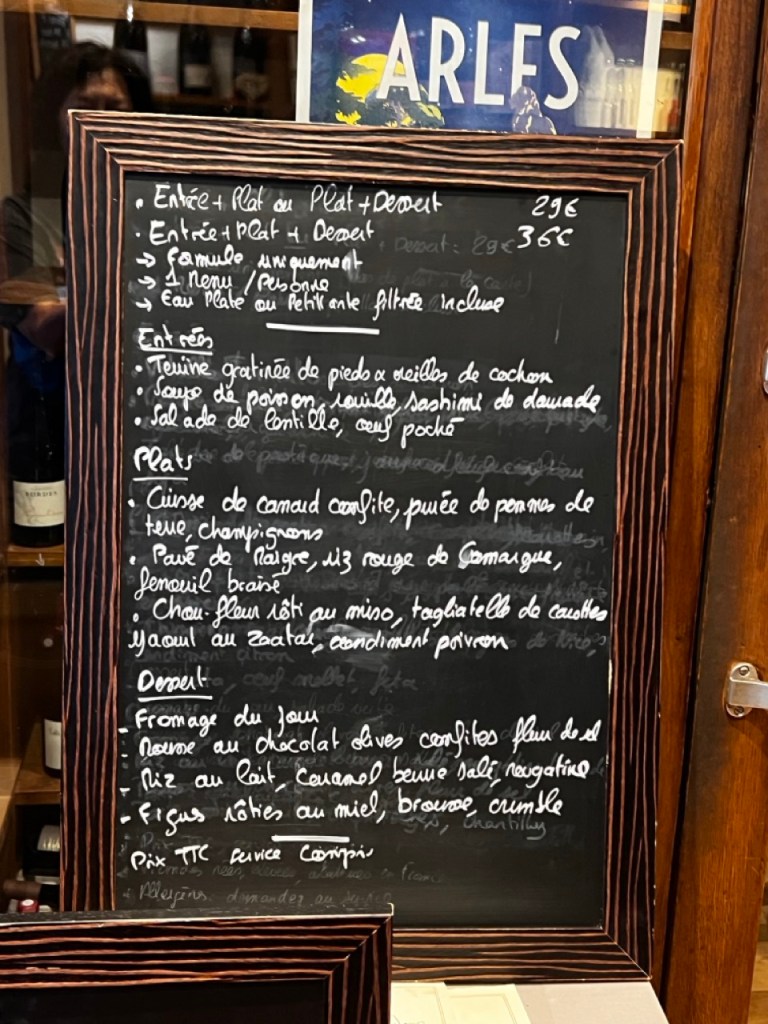 ARLES
• Entrée + Plat ou Plat + Dessert 29€
• Entrée + Plat + Dessert 36€
→ Formule uniquement
→ 1 Menu / Personne
→ Eau Plate ou Petillante filtrée incluse
Entrées
• Terrine gratinée de pieds & oreilles de cochon
• Soupe de poisson, rouille, sashimi de daurade
• Salade de lentille, œuf poché
Plats
• Cuisse de canard confite, purée de pommes de
terre, champignons
• Pavé de Maigre, riz rouge de Camargue,
fenouil braisé
• Chou-fleur rôti au miso, tagliatelle de carottes
Yaourt au Zaatar, condiment poivron
Dessert
- Fromage du jour
- Mousse au chocolat olives confites fleur de sel
- Riz au lait, Caramel beurre salé, nougatine
- Figues rôties au miel, brousse, crumble
Prix TTC service Compris